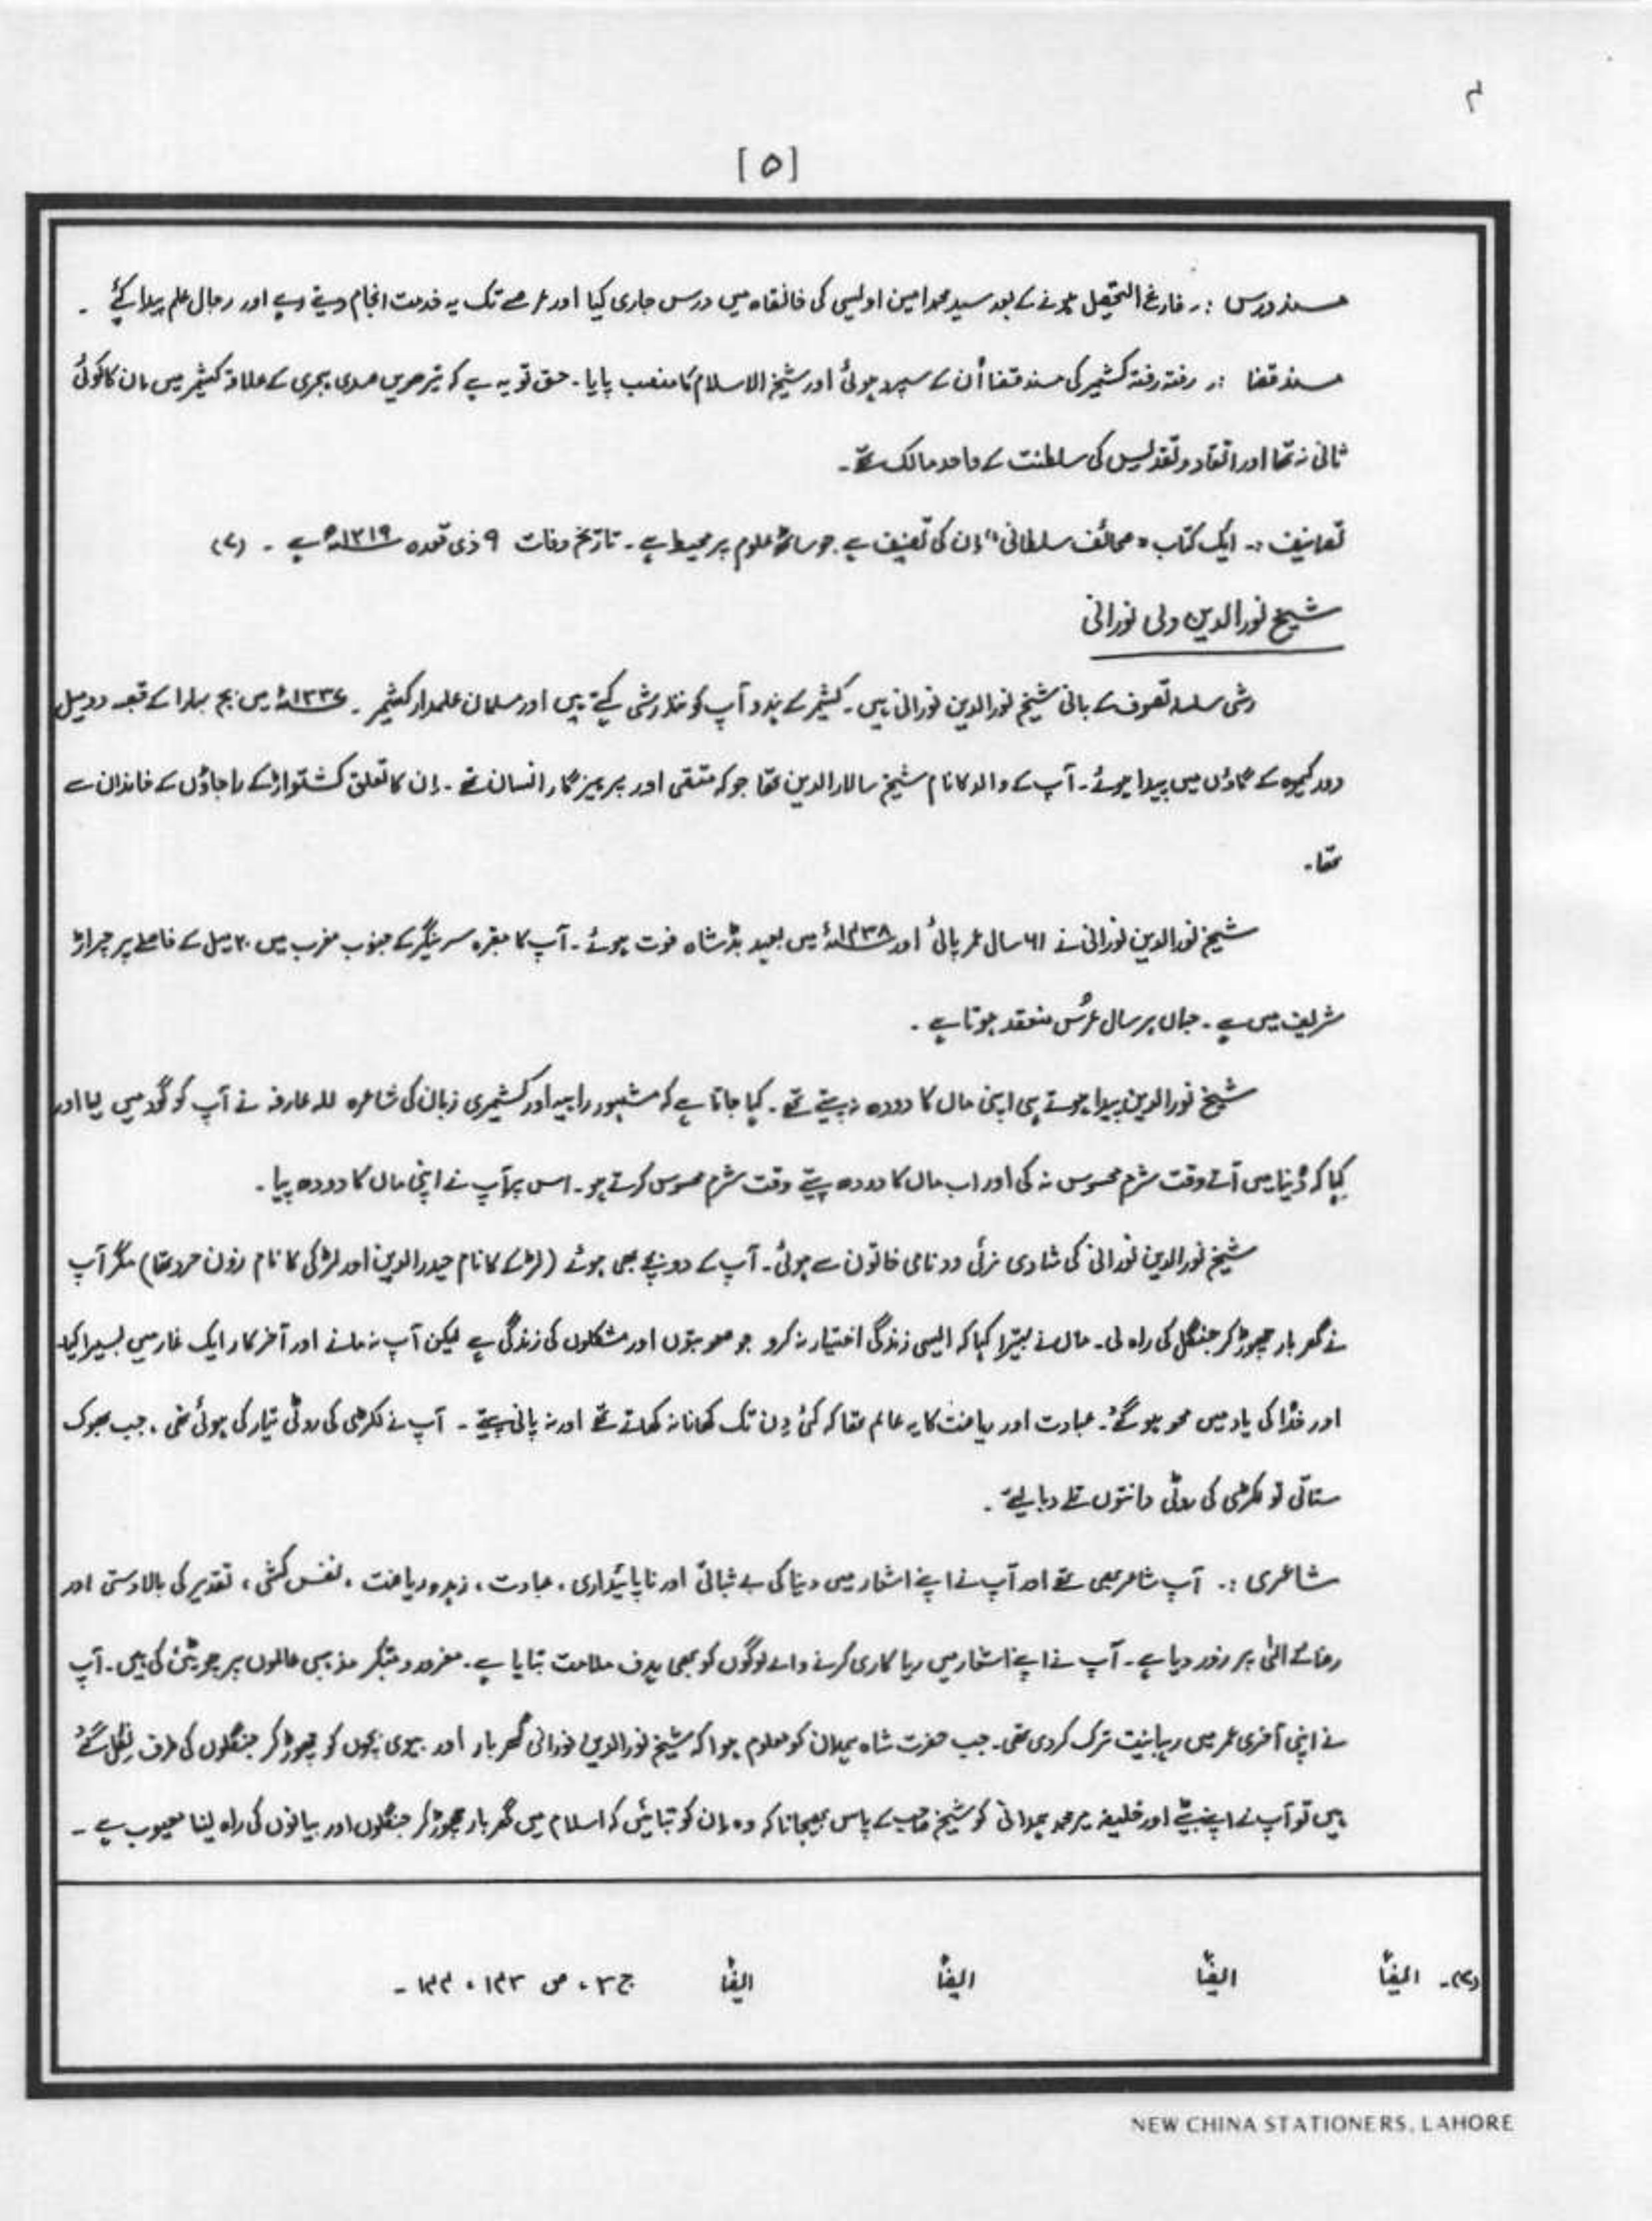 ۴
[۵]
مسند درس :۔ فارغ التحصیل ہونے کے بعد سید محمد امین اویسی کی خانقاہ میں درس جاری کیا اور عرصے تک یہ خدمت انجام دیتے رہے اور رجال علم پیدا کئے ۔
مسند قضا :۔ رفتہ رفتہ کشمیر کی مسند قضا اُن کے سپرد ہوئی اور شیخ الاسلام کا منصب پایا ۔ حق تو یہ ہے کہ تیرھویں صدی ہجری کے علاقۂ کشمیر میں ان کا کوئی
ثانی نہ تھا اور اتقاد و تقدیس کی سلطنت کے واحد مالک تھے ۔
تصانیف :۔ ایک کتاب "صحائف سلطانی" اِن کی تصنیف ہے جو ساٹھ علوم پر محیط ہے ۔ تاریخ وفات ۹ ذی قعدہ ۱۳۱۹ھ ہے ۔ (۷)
شیخ نورالدین ولی نورانی
رشی سلسلہ تصوف کے بانی شیخ نورالدین نورانی ہیں ۔ کشمیر کے ہندو آپ کو نندہ رشی کہتے ہیں اور مسلمان علمدار کشمیر ۔ ۱۳۳۷ء میں بج بہارا کے قصبہ دو میل
دور کیموہ کے گاؤں میں پیدا ہوئے ۔ آپ کے والد کا نام شیخ سالارالدین تھا جو کہ متقی اور پرہیزگار انسان تھے ۔ اِن کا تعلق کشتواڑ کے راجاؤں کے خاندان سے
تھا ۔
شیخ نورالدین نورانی نے ۶۱ سال عمر پائی اور ۱۴۳۸ء میں بعہد بڈشاہ فوت ہوئے ۔ آپ کا مقبرہ سرینگر کے جنوب مغرب میں ۲۰ میل کے فاصلے پر چراڑ
شریف میں ہے ۔ جہاں ہر سال عُرس منعقد ہوتا ہے ۔
شیخ نورالدین پیدا ہوتے ہی اپنی ماں کا دودھ نہ پیتے تھے ۔ کہا جاتا ہے کہ مشہور راہبہ اور کشمیری زبان کی شاعرہ للہ عارفہ نے آپ کو گود میں لیا اور
کہا کہ دُنیا میں آتے وقت شرم محسوس نہ کی اور اب ماں کا دودھ پیتے وقت شرم محسوس کرتے ہو ۔ اس پر آپ نے اپنی ماں کا دودھ پیا ۔
شیخ نورالدین نورانی کی شادی زئی دد نامی خاتون سے ہوئی ۔ آپ کے دو بچے بھی ہوئے (لڑکے کا نام حیدرالدین اور لڑکی کا نام زون تھا) مگر آپ
نے گھر بار چھوڑ کر جنگل کی راہ لی ۔ ماں نے بہتیرا کہا کہ ایسی زندگی اختیار نہ کرو جو صعوبتوں اور مشکلوں کی زندگی ہے لیکن آپ نہ مانے اور آخر کار ایک غار میں بسیرا کیا
اور خُدا کی یاد میں محو ہو گئے ۔ عبادت اور ریاضت کا یہ عالم تھا کہ کئی دِن تک کھانا نہ کھاتے تھے اور نہ پانی پیتے ۔ آپ نے لکڑی کی روٹی تیار کی ہوئی تھی ، جب بھوک
ستاتی تو لکڑی کی روٹی دانتوں تلے دبا لیتے ۔
شاعری :۔ آپ شاعر بھی تھے اور آپ نے اپنے اشعار میں دنیا کی بے ثباتی اور ناپائیداری ، عبادت ، زہد و ریاضت ، نفس کشی ، تقدیر کی بالادستی اور
رضائے الٰہی پر زور دیا ہے ۔ آپ نے اپنے اشعار میں ریا کاری کرنے والے لوگوں کو بھی ہدف ملامت بنایا ہے ۔ مغرور و متکبر مذہبی عالموں پر چوٹیں کی ہیں ۔ آپ
نے اپنی آخری عمر میں رہبانیت ترک کردی تھی ۔ جب حضرت شاہ ہمدان کو معلوم ہوا کہ شیخ نورالدین نورانی گھر بار اور بیوی بچوں کو چھوڑ کر جنگلوں کی طرف نِکل گئے
ہیں تو آپ نے اپنے بیٹے اور خلیفہ میر محمد ہمدانی کو شیخ صاحب کے پاس بھیجا تاکہ وہ اِن کو بتائیں کہ اسلام میں گھر بار چھوڑ کر جنگلوں اور بیانوں کی راہ لینا معیوب ہے ۔
(۷)۔ ایضاً ایضاً ایضاً ایضاً ج ۳ ، ص ۱۴۳ ، ۱۴۴ ۔
NEW CHINA STATIONERS, LAHORE